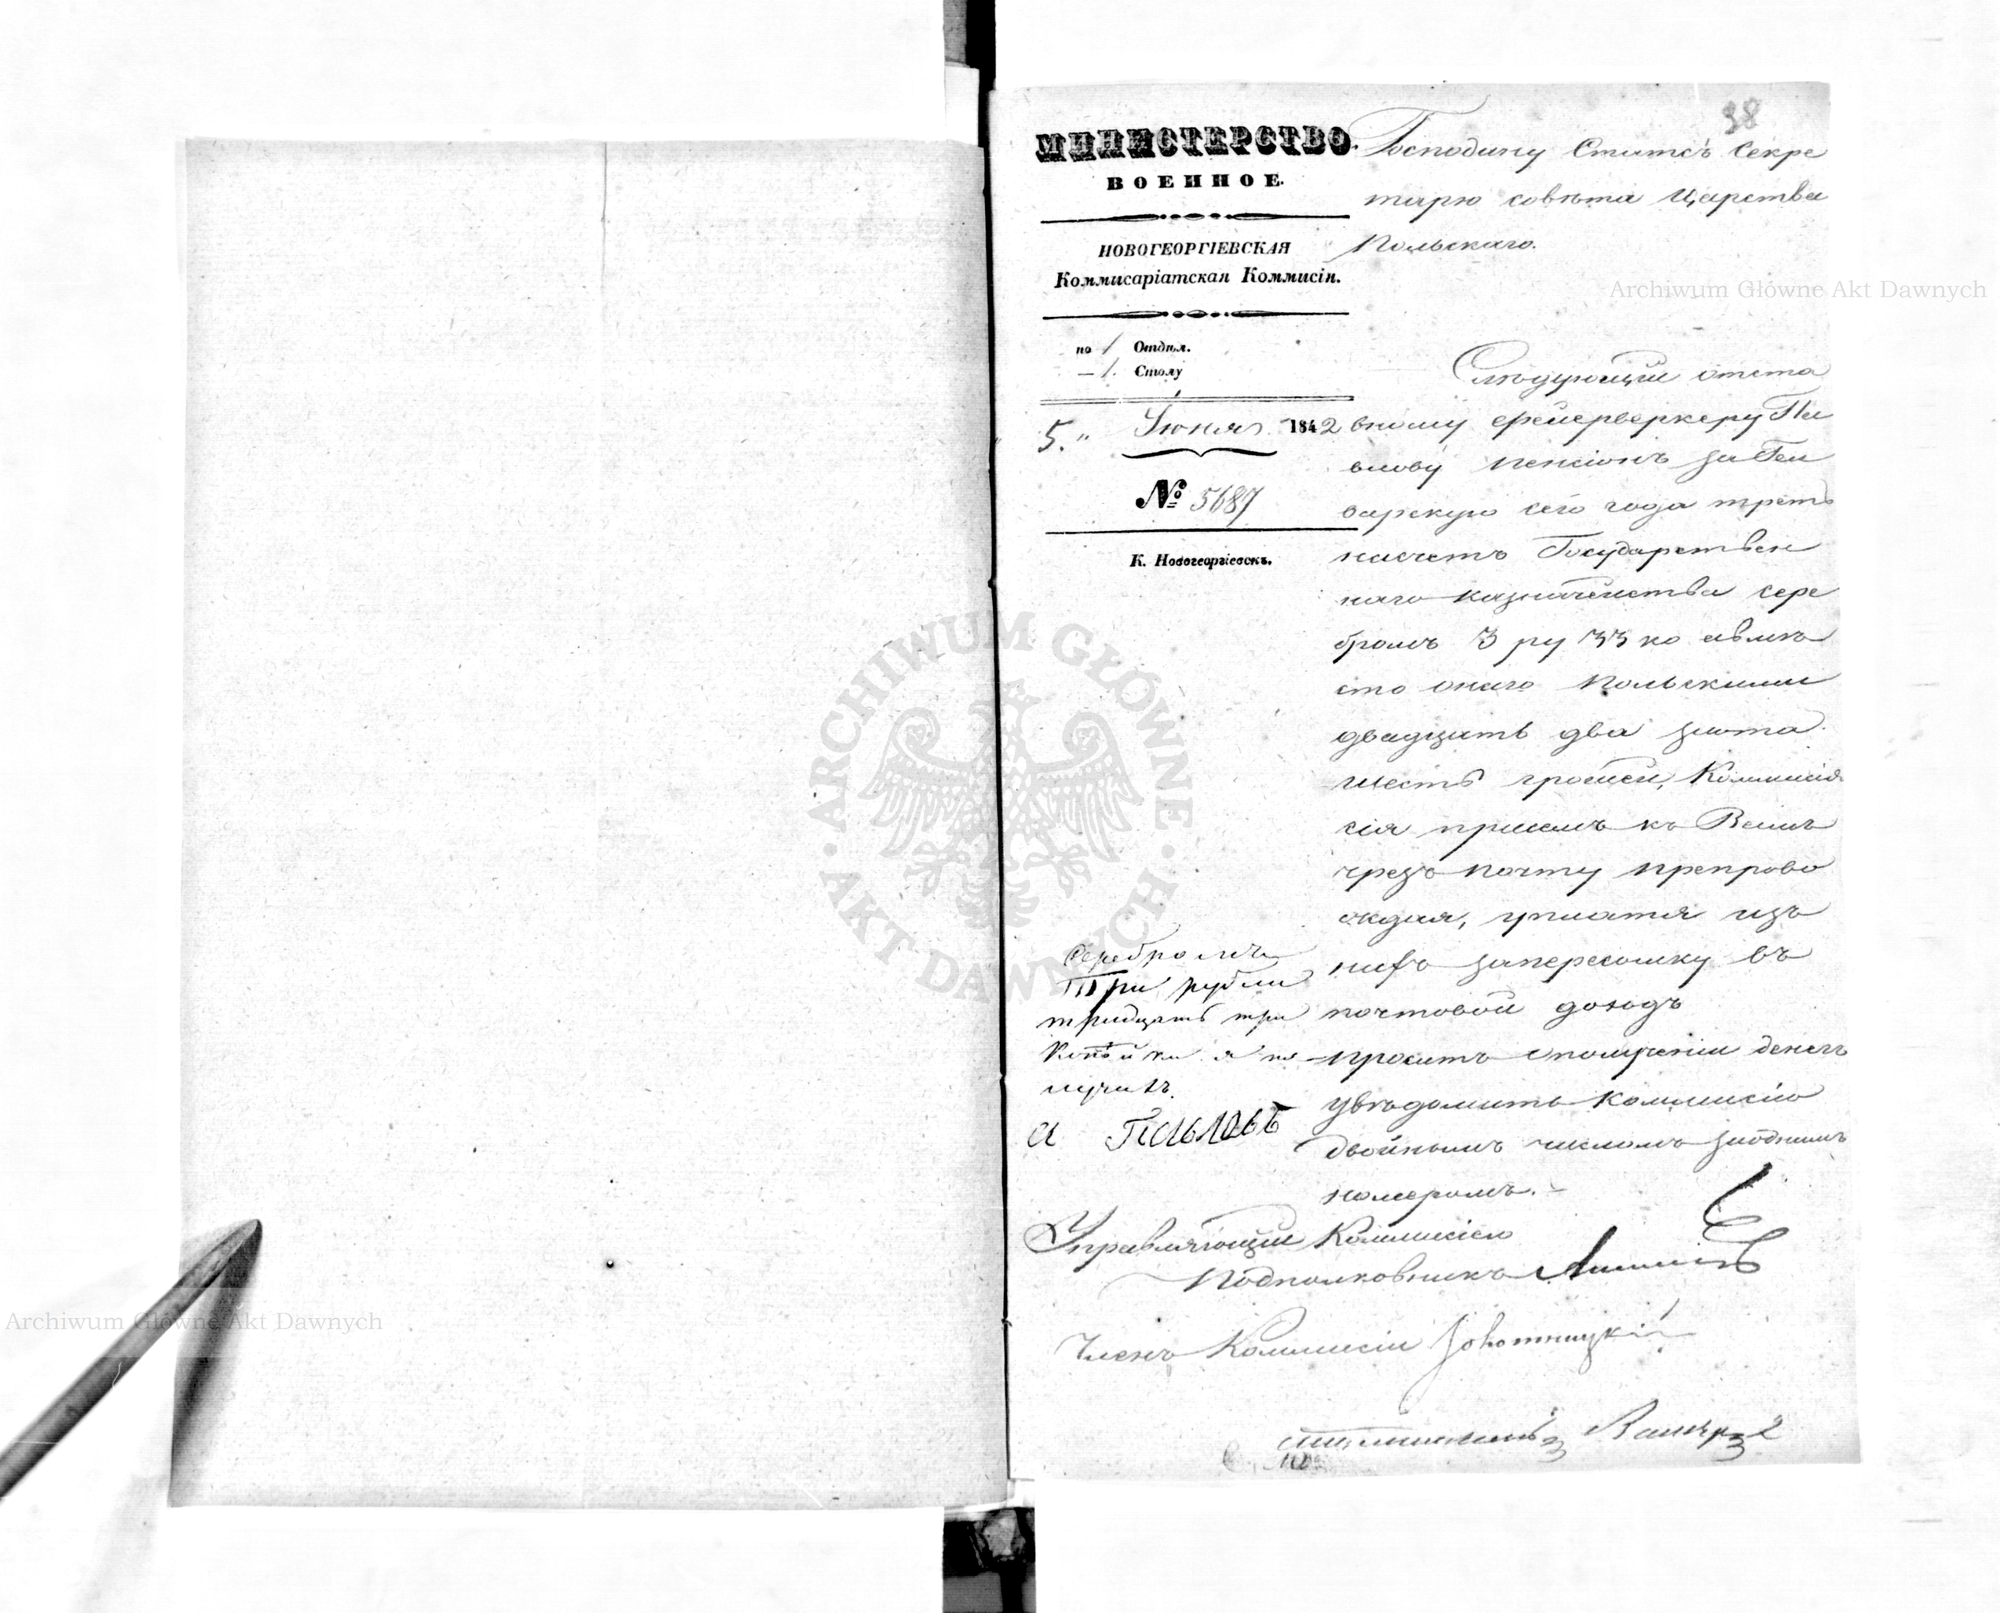 38
МИНИСТЕРСТВО
ВОЕННОЕ.
НОВОГЕОРГІЕВСКАЯ
Коммисаріатская Коммисія.
по 1 Отдѣл.
— 1. Столу
5." Іюня 1842
№ 5687
К. Новогеоргіевскъ.
Господину Статсъ Секре
тарю совѣта Царства
Польскаго.
Слѣдующій отста
вному фейерверкеру Па
влову пенсіонъ за Ген
варскую сего года треть
насчетъ Государствен
наго казначейства сере
бромъ 3 ру 33 ко авмѣ
сто онаго Польскими
двадцать два злота
шесть грошей, Коммис
сія присемъ къ Вамъ
чрезъ почту препрово
ждая, уплатя изъ
нихъ запересылку въ
почтовой доходъ
проситъ ополученіи денегъ
увѣдомить Коммисію
двойнымъ числомъ заоднимъ
номеромъ.
Серебромъ
Три рубли
тридцать три
Копѣйки я по
лучилъ.
а Павловъ
Управляющій Коммисіею
Подполковникъ
Членъ Коммисіи
Archiwum Główne Akt Dawnych
Archiwum Główne Akt Dawnych
ARCHIWUM GŁÓWNE AKT DAWNYCH